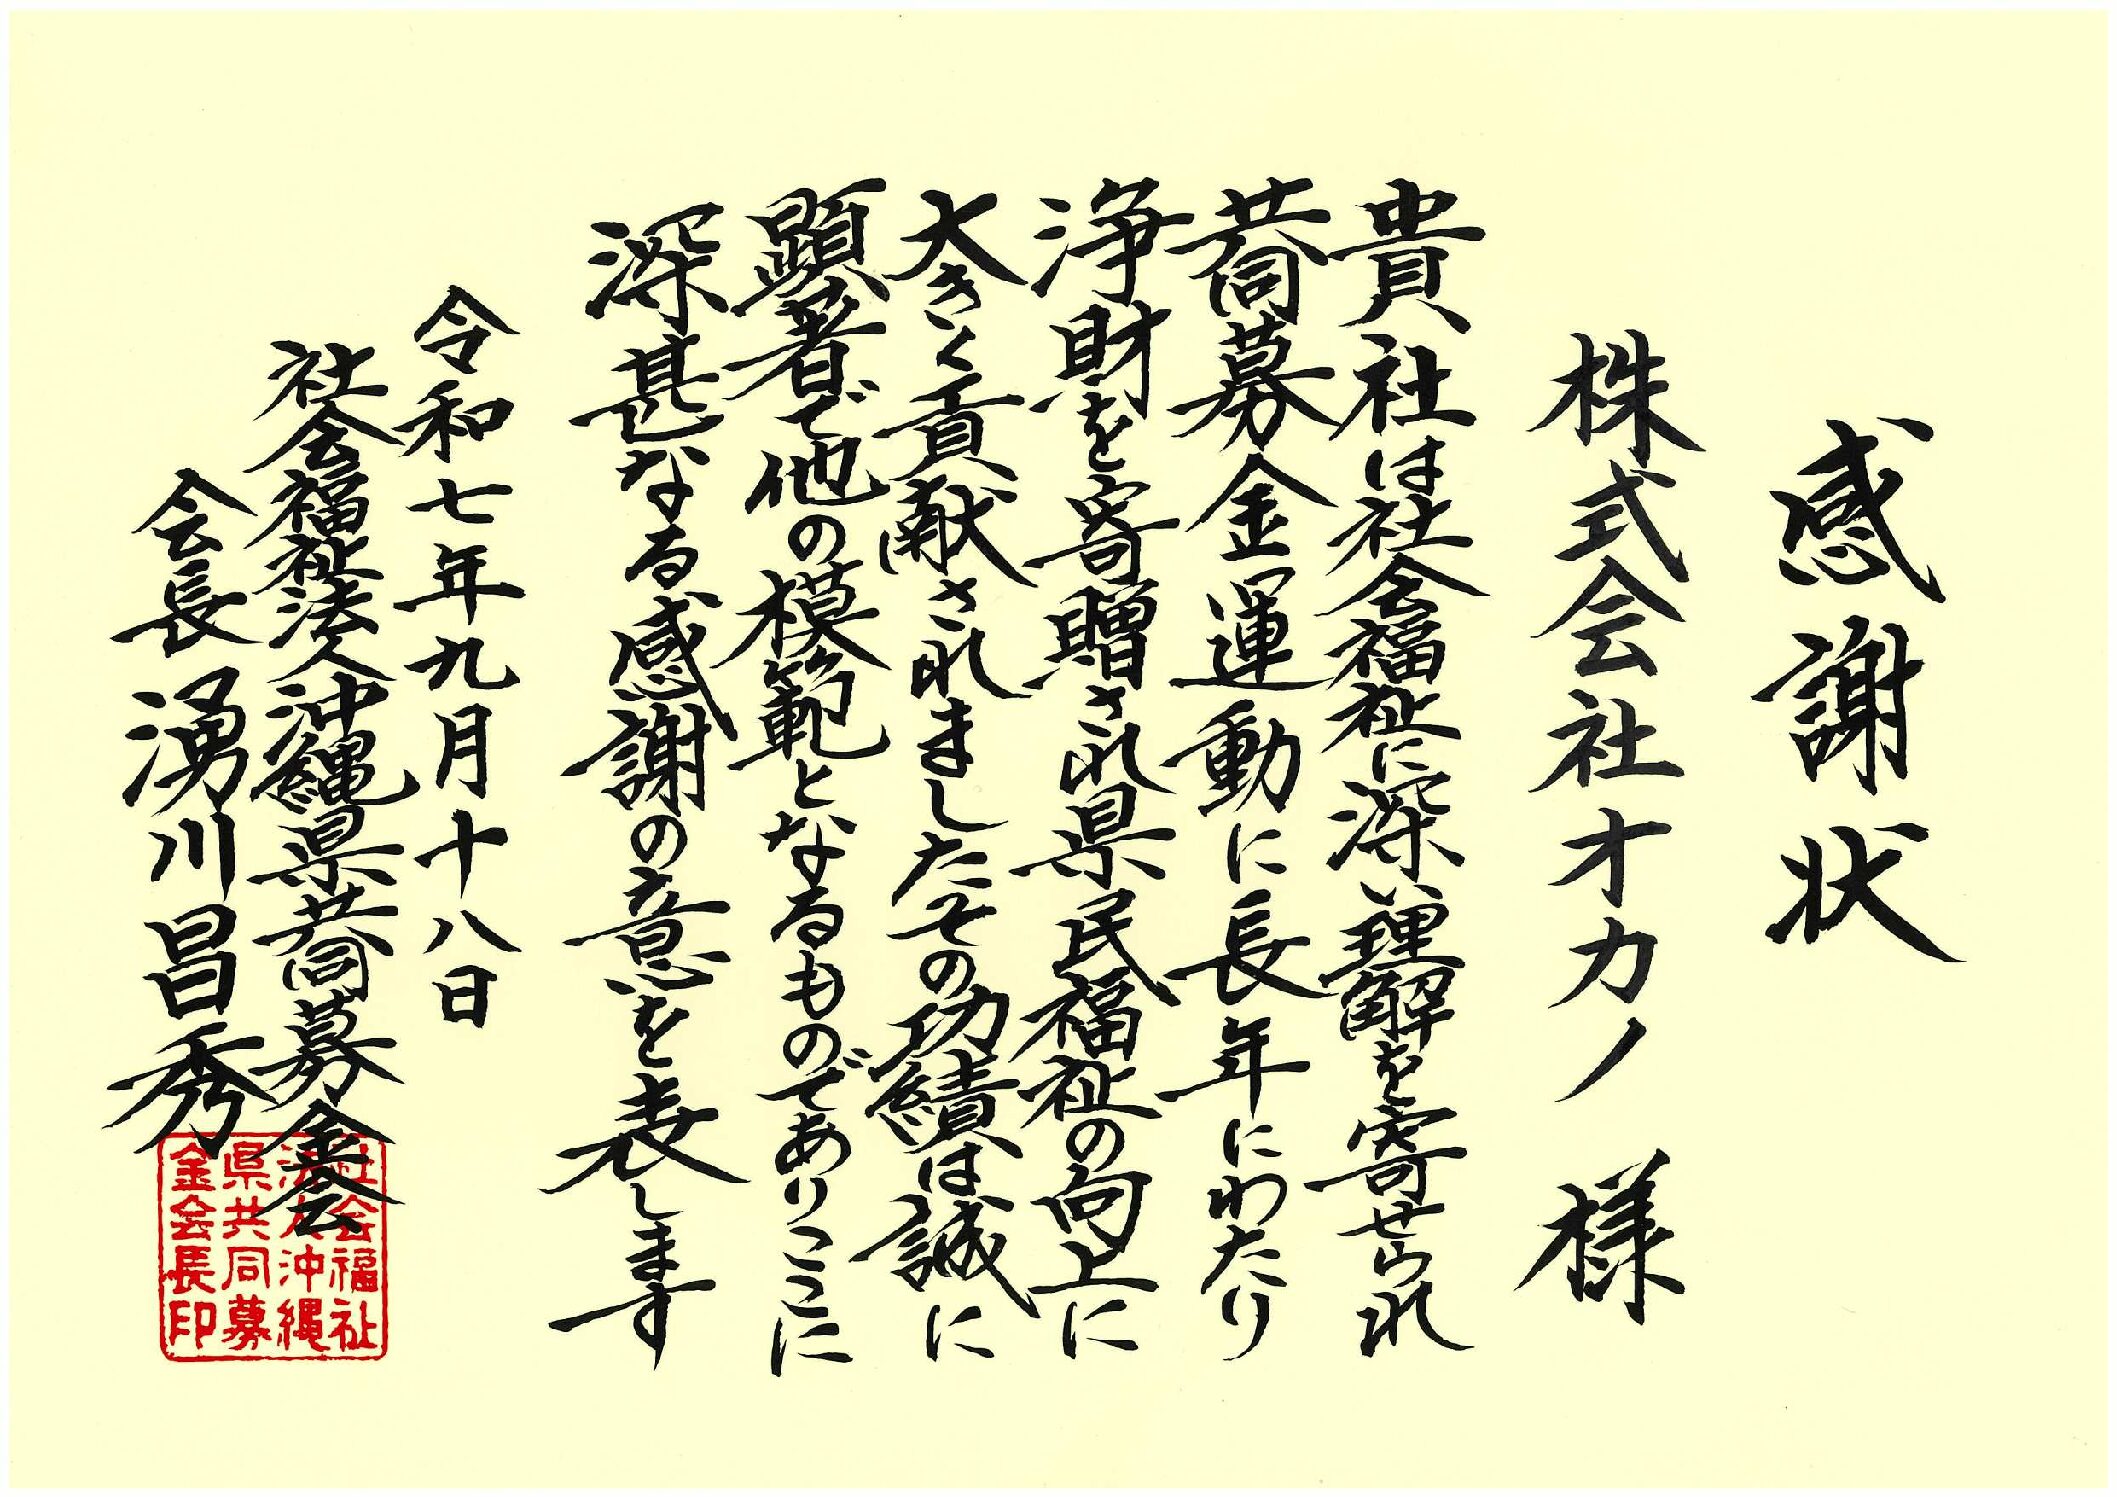 感謝状
株式会社オカノ 様
貴社は社会福祉に深い理解を寄せられ
共同募金運動に長年にわたり
浄財を寄贈され県民福祉の向上に
大きく貢献されましたその功績は誠に
顕著で他の模範となるものでありここに
深甚なる感謝の意を表します
令和七年九月十八日
社会福祉法人沖縄県共同募金会
会長 湧川昌秀
社会福祉
法人沖縄
県共同募
金会長印